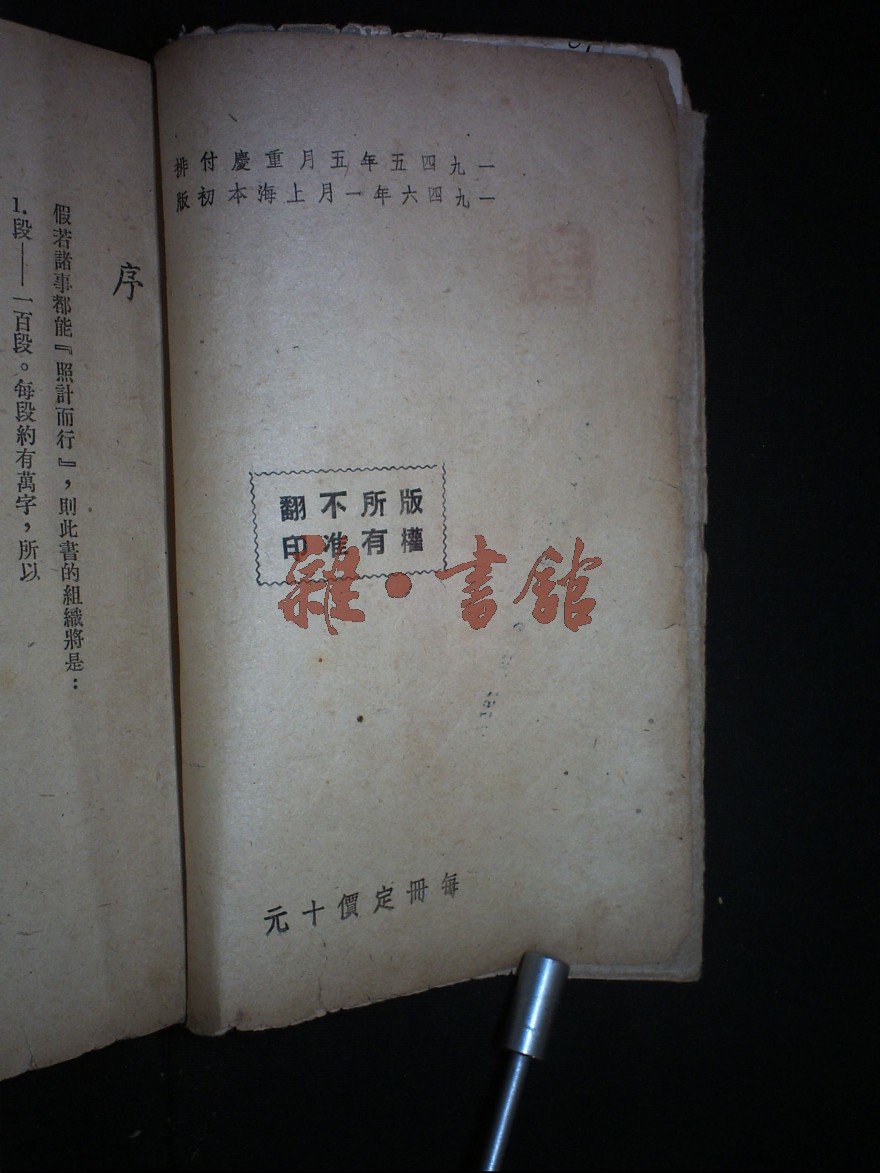 一九四五年五月重慶付排
一九四六年一月上海本初版
版權所有
不准翻印
每冊定價十元
雜·書館
序
假若諸事都能『照計而行』，則此書的組織將是：
1.段——一百段。每段約有萬字，所以